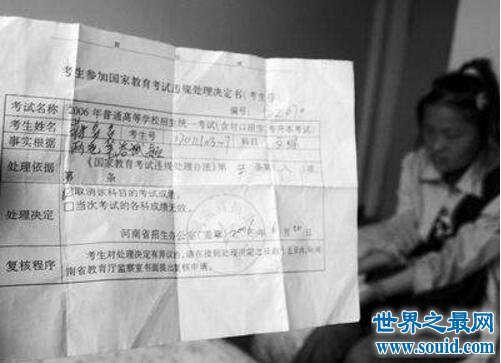 考生参加国家教育考试违规处理决定书(考生存)
编号:
考试名称 2006年普通高等学校招生统一考试(含对口招生、专升本考试)
考生姓名 考生号 科目
事实根据
处理依据 《国家教育考试违规处理办法》第 条第 项
第 条
处理决定 取消该科目的考试成绩。
□当次考试的各科成绩无效。
河南省招生办公室(盖章) 2006年6月20日
复核程序 考生对处理决定有异议的,请在接到处理决定之日起十五日内,向河
南省教育厅监察室书面提出复核申请。
世界之最网
www.souid.com